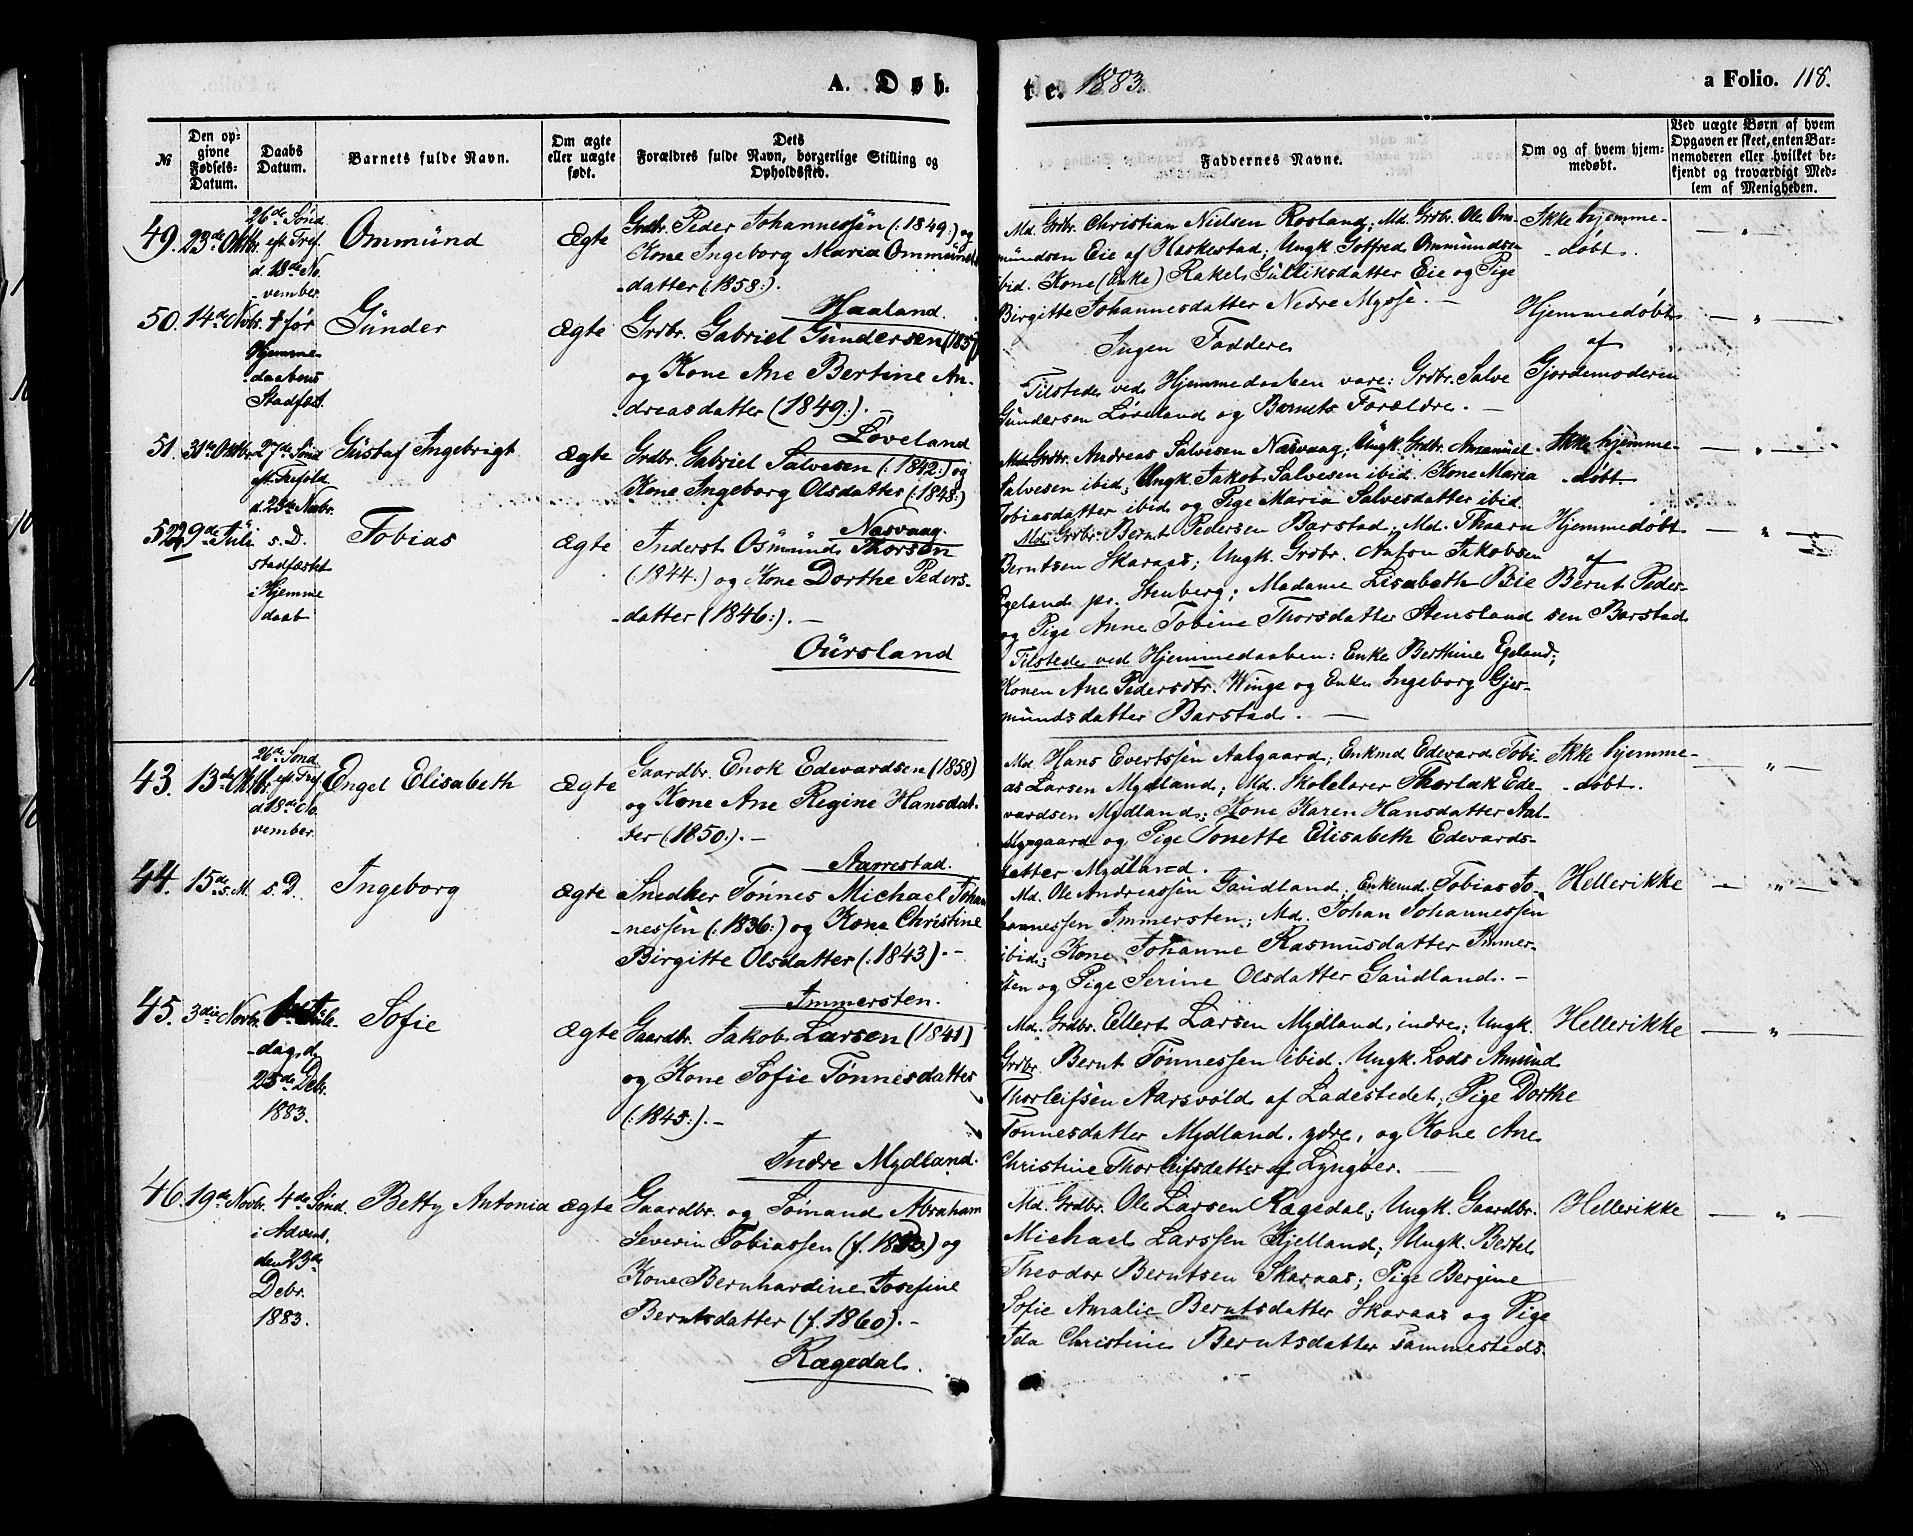 A. Døb-
te. 1883.
a Folio. 118.
№
Den op-
givne
Fødsels-
Datum.
Daabs
Datum.
Barnets fulde Navn.
Om ægte
eller uægte
født.
Dets
Forældres fulde Navn, borgerlige Stilling og
Opholdssted.
Faddernes Navne.
Om og af hvem hjem-
medøbt.
Ved uægte Børn af hvem
Opgaven er skeet, enten Bar-
nemoderen eller hvilket be-
kjendt og troværdigt Med-
lem af Menigheden.
49. 23de Oktbr.
26de Sønd
eft Tref.
d. 18de No-
vember.
Ommünd
Ægte
Grdbr. Peder Johannessen (:1849:) og
Kone Ingeborg Maria Ommünds-
datter (:1858:).
Haaland.
Md. Grdbr. Christian Nielsen Rosland; Md. Grdbr. Ole Om-
mündsen Eie af Haskestad. Ungk. Gotfred Ommundsen
ibid. Kone (Enke) Rakel Gülliksdatter Eie og Pige
Birgitte Johannesdatter Nedre Mysse. —
Ikke hjemme-
døbt.
— " —
50. 14de Novbr.
† før
Hjemme-
daabens
Stadfæst.
Günder
Ægte
Grdbr. Gabriel Gündersen (1837)
og Kone Ane Bertine An-
dreasdatter (1849:).
Løveland
Ingen Faddere
Tilstede ved Hjemmedaaben vare: Grdbr. Salve
Gundersen Løveland og Barnets Forældre. —
Hjemmedøbt
af
Gjordemoderen
— " —
51. 31te Oktbr.
27de Sønd
eft. Trefold.
d. 25de Novbr.
Güstaf Ingebrigt
Ægte
Grdbr. Gabriel Salvesen (:1842:) og
Kone Ingeborg Olsdatter (:1845:)
Næsvaag.
Md. Grdbr. Andreas Salvesen Næsvaag; Ungk. Grdbr. Amanuel
Salvesen ibid; Ungk. Jakob Salvesen ibid. Kone Maria
Tobiasdatter ibid og Pige Maria Salvesdatter ibid.
Ikke hjemme-
døbt
— " —
52. 29de Jüli
s. D.
stadfæstet
i Hjemme
daab
Tobias
Ægte
Inderst Osmünd Thorsen
(1844:) og Kone Dorthe Peders-
datter (1846:). —
Oürsland
Md. Grdbr. Bernt Pedersen Barstad; Md. Thaarn
Berntsen Skaraas; Ungk. Grdbr. Aafon Jakobsen
Egeland pr. Stenberg; Madame Lisabeth Bie
og Pige Anne Tobine Thorsdatter Stensland
Tilstede ved Hjemmedaaben: Enke Berthine Egeland;
Konen Ane Pedersdtr. Winge og Enke Ingeborg Gjer-
mündsdatter Barstad. —
Hjemmedøbt
af
Bernt Peder-
sen Barstad
— " —
43. 13de Oktbr.
26de Sønd.
eft Tref
d. 18de No-
vember.
Engel Elisabeth
Ægte
Gaardbr. Enok Edevardsen (1858)
og Kone Ane Regine Hansdat-
ter (1850:). —
Aarrestad.
Md. Hans Evertssen Aalgaard; Enkmd Edevard Tobi-
as Larsen Mydland; Md. Skolelærer Thorlak Ede-
vardsen Mydland; Kone Karen Hansdatter Aal-
gaard og Pige Tonette Elisabeth Edwards-
datter Mydland.
Ikke hjemme-
døbt.
— " —
44. 15de s. M.
s. D.
Ingeborg
Ægte
Snedker Tønnes Michael Johan-
nessen (:1836:) og Kone Christine
Birgitte Olsdatter (:1843). -
Immersten.
Md. Ole Andreassen Gaüdland; Enkemd. Tobias Jo-
hannessen Immersten; Md. Johan Johannessen
ibid; Kone Johanne Rasmusdatter Immer-
sten og Pige Serine Olsdatter Gaüdland. -
Hellerikke
— " —
45. 3die Novbr.
1ste Jüle-
dag, d.
25de Debr.
1883.
Sofie
Ægte
Gaardbr. Jakob Larsen (1841)
og Kone Sofie Tønnesdatter
(:1845:). -
Indre Mydland.
Md. Grdbr. Ellert Larsen Mydland, indre; Ungk.
Grdbr. Bernt Tønnessen ibid. Ungk. Lods Amünd
Thorleifsen Aarsvold af Ladestedet; Pige Dorthe
Tønnesdatter Mydland, ydre, og Kone Ane
Christine Thorleifsdatter af Lyngøer. —
Hellerikke
— " —
46. 19de Novbr.
4de Sønd.
i Advent,
den 23de
Debr.
1883.
Betty Antonia
Ægte
Gaardbr. og Sømand Abraham
Severin Tobiassen (f. 1850.) og
Kone Bernhardine Josefine
Berntsdatter (f. 1860). -
Rægedal.
Md. Grdbr. Ole Larsen Rægedal; Ungk. Gaardbr.
Michael Larssen Kjelland; Ungk. Bertel
Theodor Berntsen Skaraas; Pige Bergine
Sofie Amalie Berntsdatter Skaraas og Pige
Ida Christine Berntsdatter sammesteds.
Hellerikke
— " —